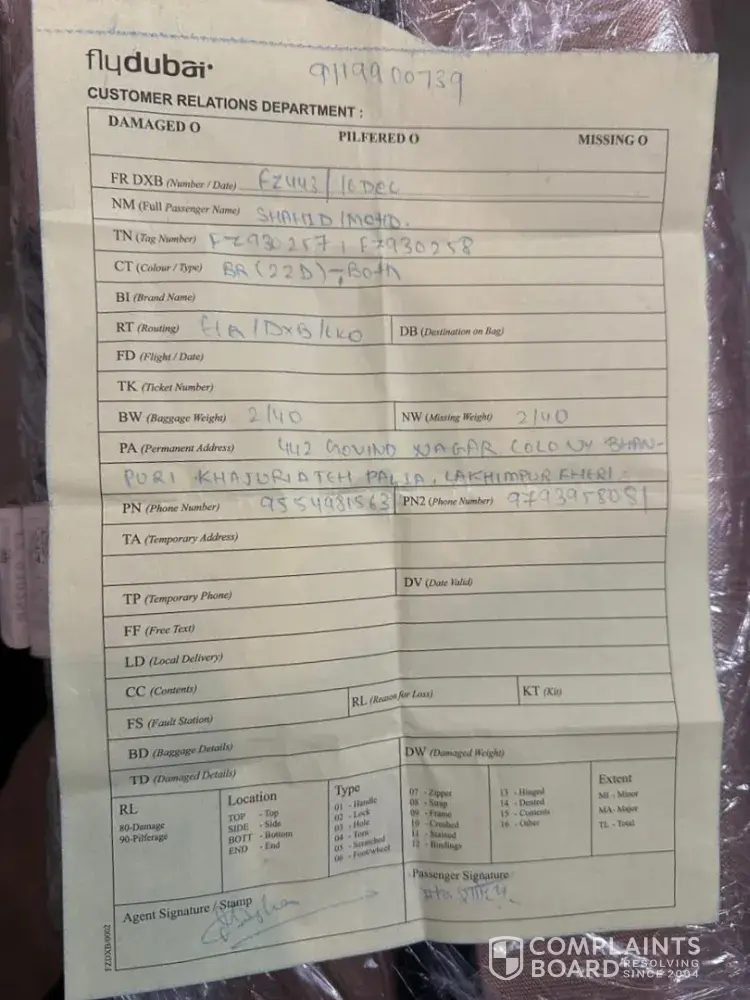 flydubai
9119900739
CUSTOMER RELATIONS DEPARTMENT :
DAMAGED O PILFERED O MISSING O
FR DXB (Number / Date) FZ443/16DEC
NM (Full Passenger Name) SHAHID/MOHD.
TN (Tag Number) FZ930257, FZ930258
CT (Colour / Type) BR(22D)-Both
BI (Brand Name)
RT (Routing) /DXB/LKO DB (Destination on Bag)
FD (Flight / Date)
TK (Ticket Number)
BW (Baggage Weight) 2/40 NW (Missing Weight) 2/40
PA (Permanent Address) 442 GOVIND NAGAR COLONY BHAN-
PURI KHAJURIA TEH PALIA, LAKHIMPUR KHERI
PN (Phone Number) 9554981563 PN2 (Phone Number) 9793958081
TA (Temporary Address)
DV (Date Valid)
TP (Temporary Phone)
FF (Free Text)
LD (Local Delivery)
CC (Contents)
RL (Reason for Loss) KT (Kit)
FS (Fault Station)
BD (Baggage Details) DW (Damaged Weight)
TD (Damaged Details)
RL
80-Damage
90-Pilferage
Location
TOP - Top
SIDE - Side
BOTT - Bottom
END - End
Type
01 - Handle
02 - Lock
03 - Hole
04 - Torn
05 - Scratched
06 - Foot/wheel
07 - Zipper
08 - Strap
09 - Frame
10 - Crushed
11 - Stained
12 - Bindings
13 - Hinged
14 - Dented
15 - Contents
16 - Other
Extent
MI - Minor
MA - Major
TL - Total
Agent Signature / Stamp
Passenger Signature
FZDXB/0002
COMPLAINTS
BOARD RESOLVING
SINCE 2004